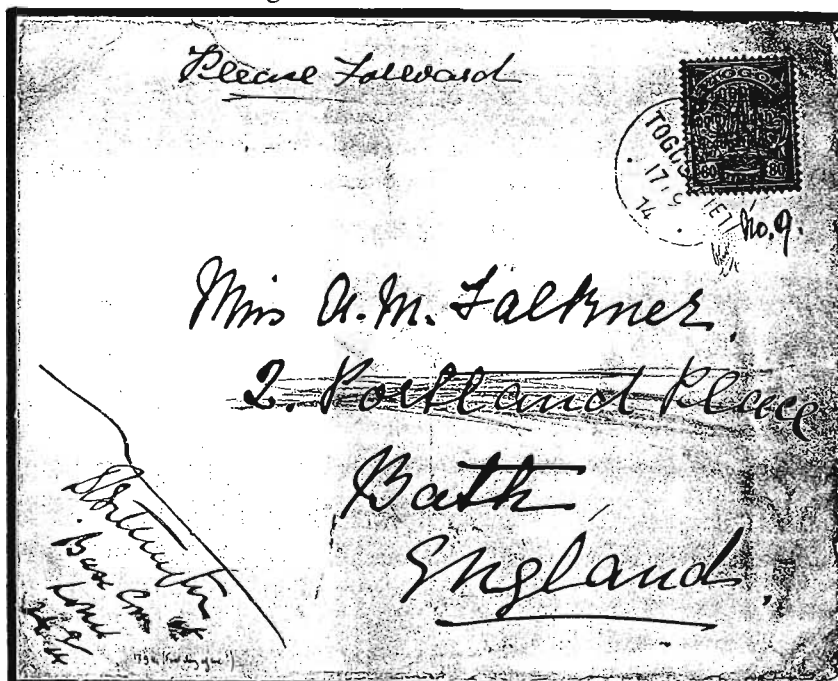 Please Forward
TOGO
80 80
17 9
14
No. 9.
Miss A. M. Falkner.
2. Portland Place
Bath
England.
Base